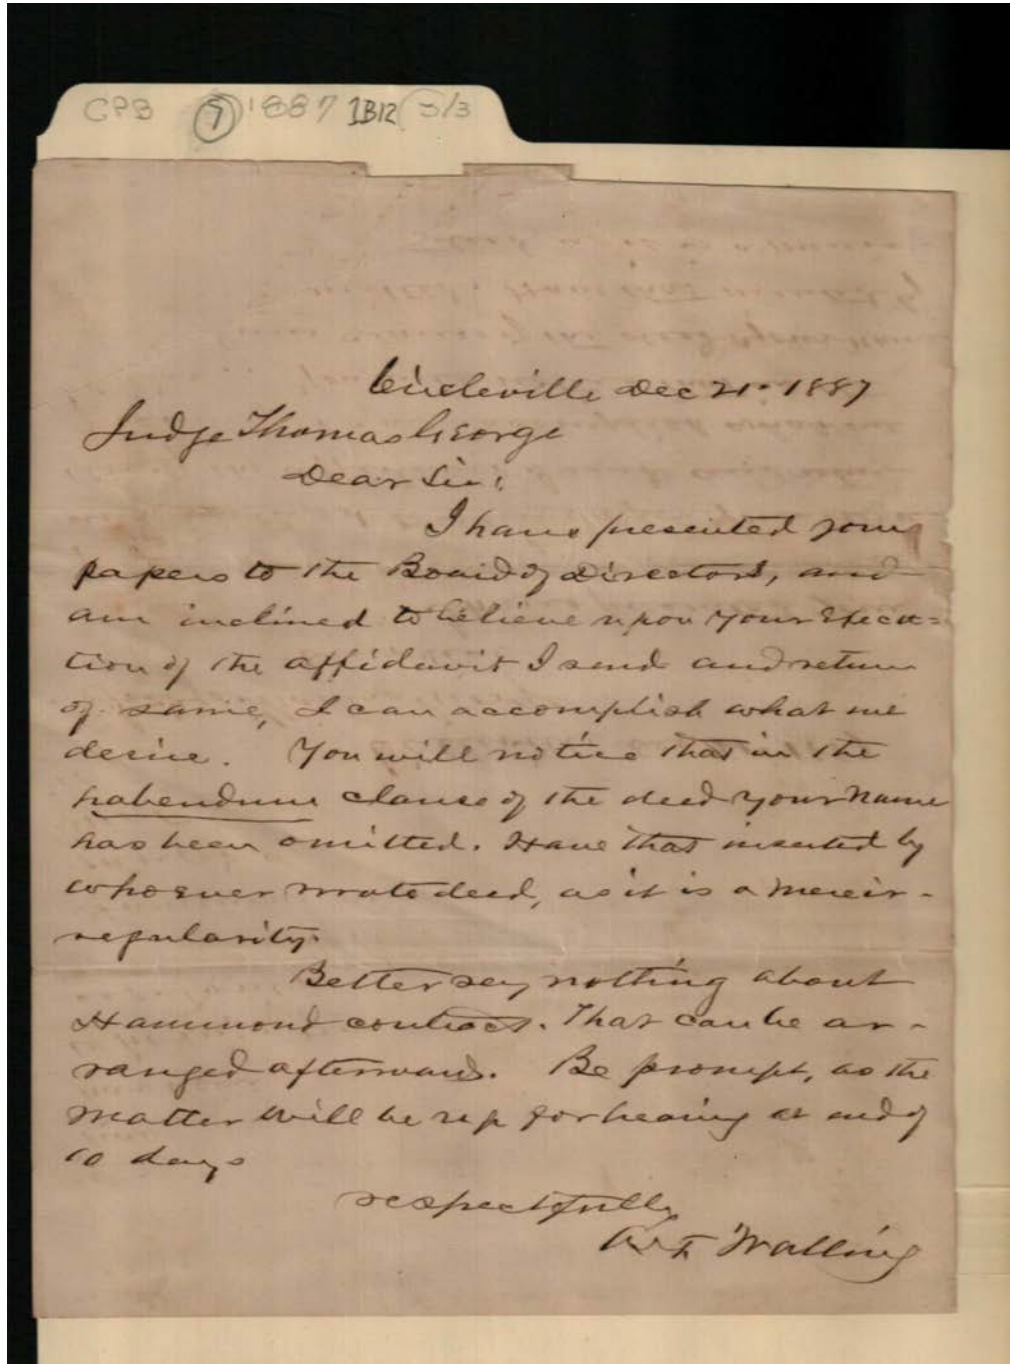 CPB 7 1887 1B12 3/3
Circleville Dec 21 - 1887
Judge Thomas George
Dear Sir:
I have presented your
papers to the Board of Directors, and
am inclined to believe upon your execu=
tion of the affidavit I send and return
of same, I can accomplish what we
desire. You will notice that in the
habendum clause of the deed your name
has been omitted. Have that inserted by
whoever wrote deed, as it is a mere ir-
regularity.
Better say nothing about
Hammond contract. That can be ar-
ranged afterward. Be prompt, as the
matter will be up for hearing at end of
10 days
respectfully
Walling